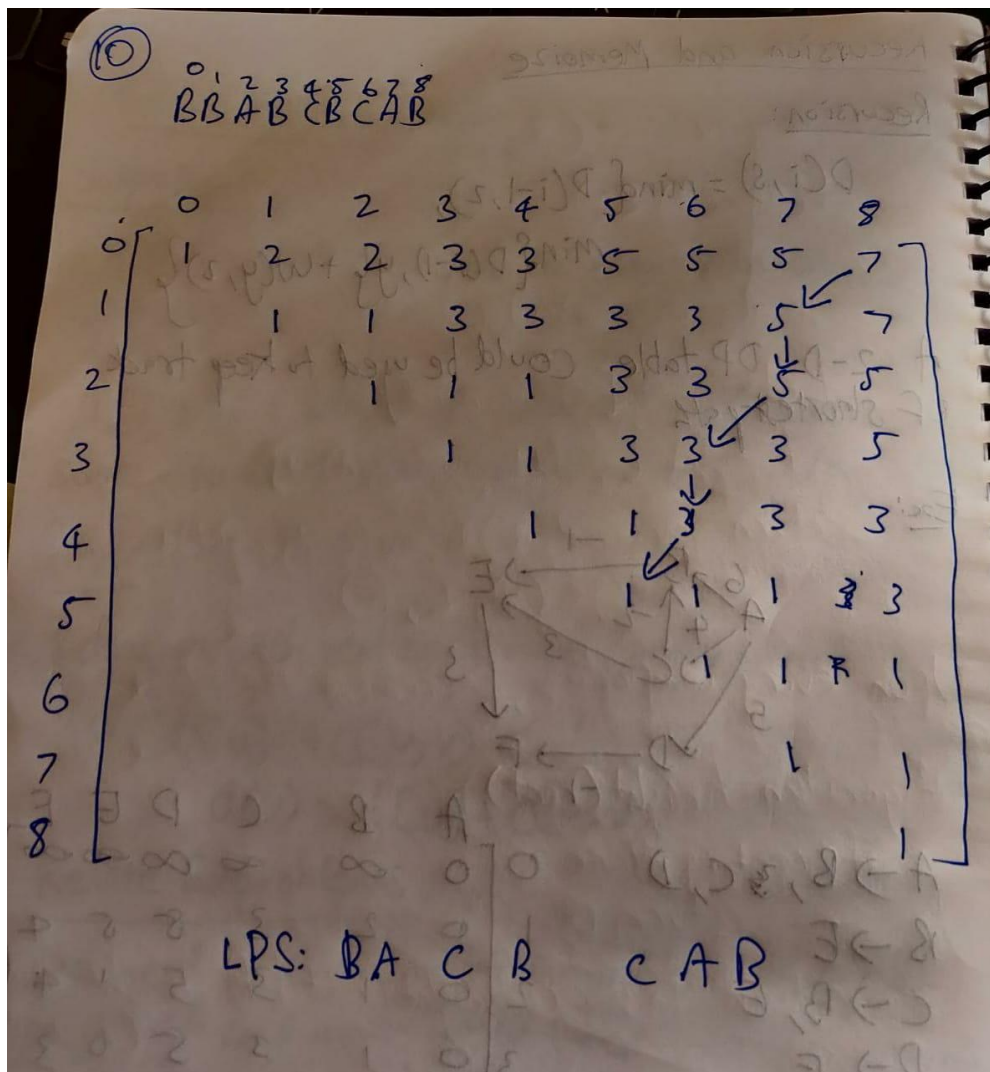 10
0 1 2 3 4 5 6 7 8
BBABCBCAB
0 1 2 3 4 5 6 7 8
0 1 2 2 3 3 5 5 5 7
1 1 1 3 3 3 3 5 7
2 1 1 1 3 3 5 5
3 1 1 3 3 3 5
4 1 1 3 3 3
5 1 1 1 3
6 1 1 1
7 1 1
8 1
LPS: BA C B C A B